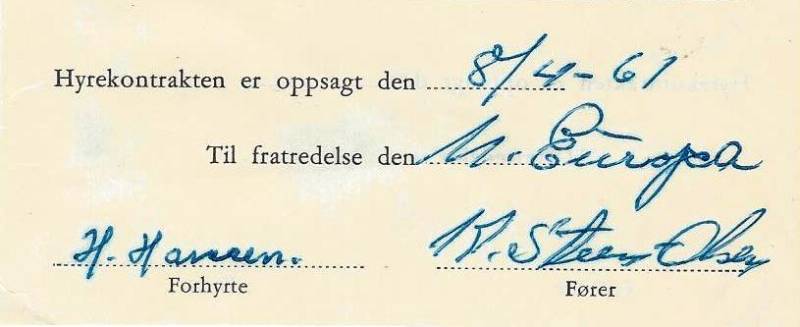 Hyrekontrakten er oppsagt den 8/4-61
Til fratredelse den N. Europa
H. Hansen. K. Steen Olsen
Forhyrte Fører